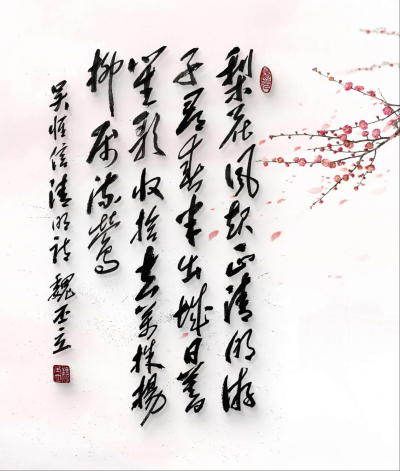 梨花风起正清明游
子寻春半出城日暮
笙歌收拾去萬株楊
柳属流鶯
吴惟信清明诗 魏丕立